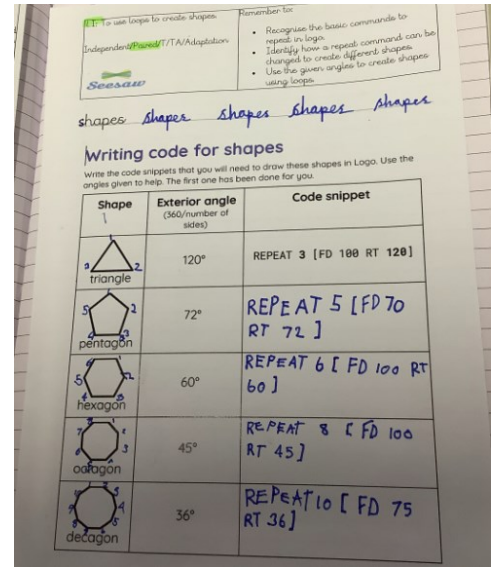 LT: To use loops to create shapes.
Independent/Paired/T/TA/Adaptation
Seesaw
Remember to:
• Recognise the basic commands to
repeat in logo.
• Identify how a repeat command can be
changed to create different shapes.
• Use the given angles to create shapes
using loops.
shapes shapes shapes shapes shapes
Writing code for shapes
Write the code snippets that you will need to draw these shapes in Logo. Use the
angles given to help. The first one has been done for you.
Shape
Exterior angle
(360/number of
sides)
Code snippet
1
3 2
triangle
120°
REPEAT 3 [FD 100 RT 120]
5 2
4 3
pentagon
72°
REPEAT 5 [FD 70
RT 72 ]
5 2
hexagon
60°
REPEAT 6 [ FD 100 RT
60 ]
octagon
45°
REPEAT 8 [ FD 100
RT 45 ]
decagon
36°
REPEAT 10 [ FD 75
RT 36 ]